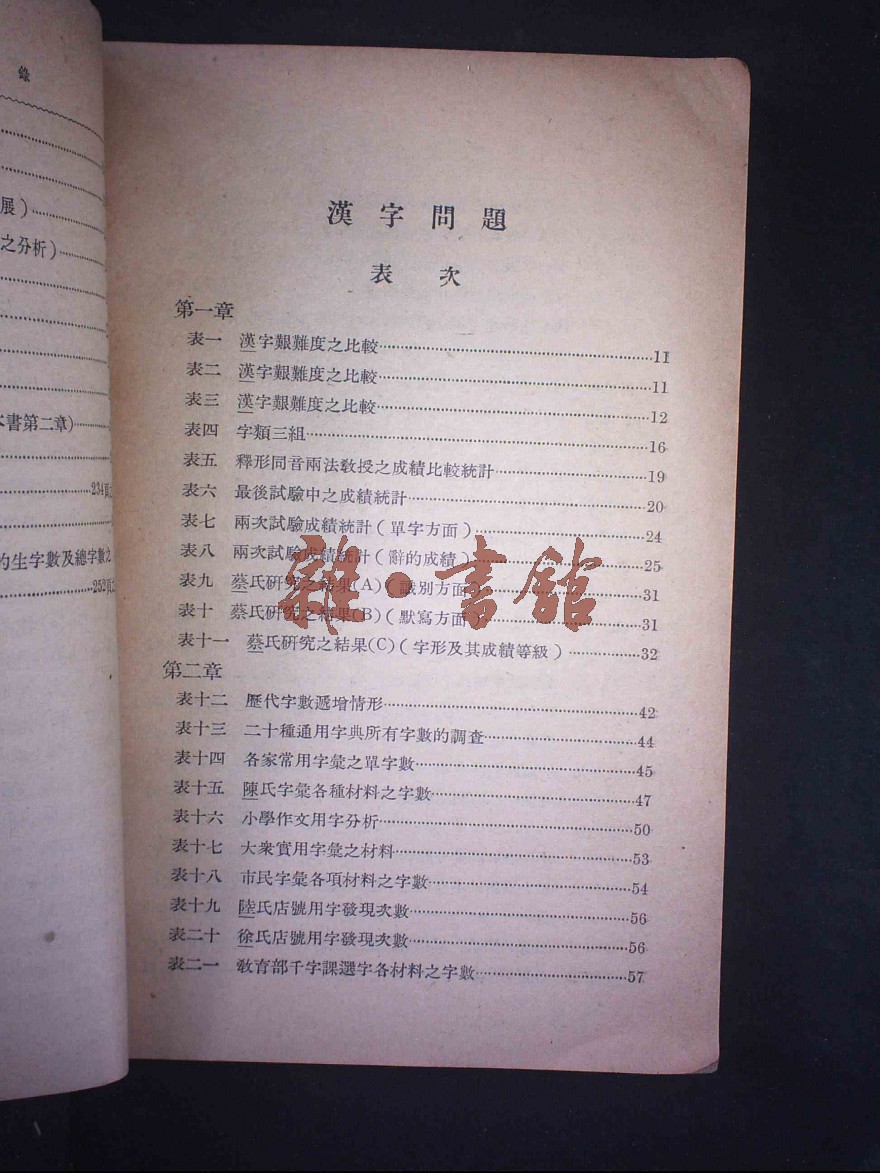 錄
展)
之分析)
本書第二章)
234頁之
的生字數及總字數之
252頁之
漢字問題
表次
第一章
表一 漢字艱難度之比較 11
表二 漢字艱難度之比較 11
表三 漢字艱難度之比較 12
表四 字類三組 16
表五 釋形同音兩法教授之成績比較統計 19
表六 最後試驗中之成績統計 20
表七 兩次試驗成績統計(單字方面) 24
表八 兩次試驗成績統計(辭的成績) 25
表九 蔡氏研究之結果(A)(識別方面) 31
表十 蔡氏研究之結果(B)(默寫方面) 31
表十一 蔡氏研究之結果(C)(字形及其成績等級) 32
第二章
表十二 歷代字數遞增情形 42
表十三 二十種通用字典所有字數的調查 44
表十四 各家常用字彙之單字數 45
表十五 陳氏字彙各種材料之字數 47
表十六 小學作文用字分析 50
表十七 大衆實用字彙之材料 53
表十八 市民字彙各項材料之字數 54
表十九 陸氏店號用字發現次數 56
表二十 徐氏店號用字發現次數 56
表二一 教育部千字課選字各材料之字數 57
雜·書館